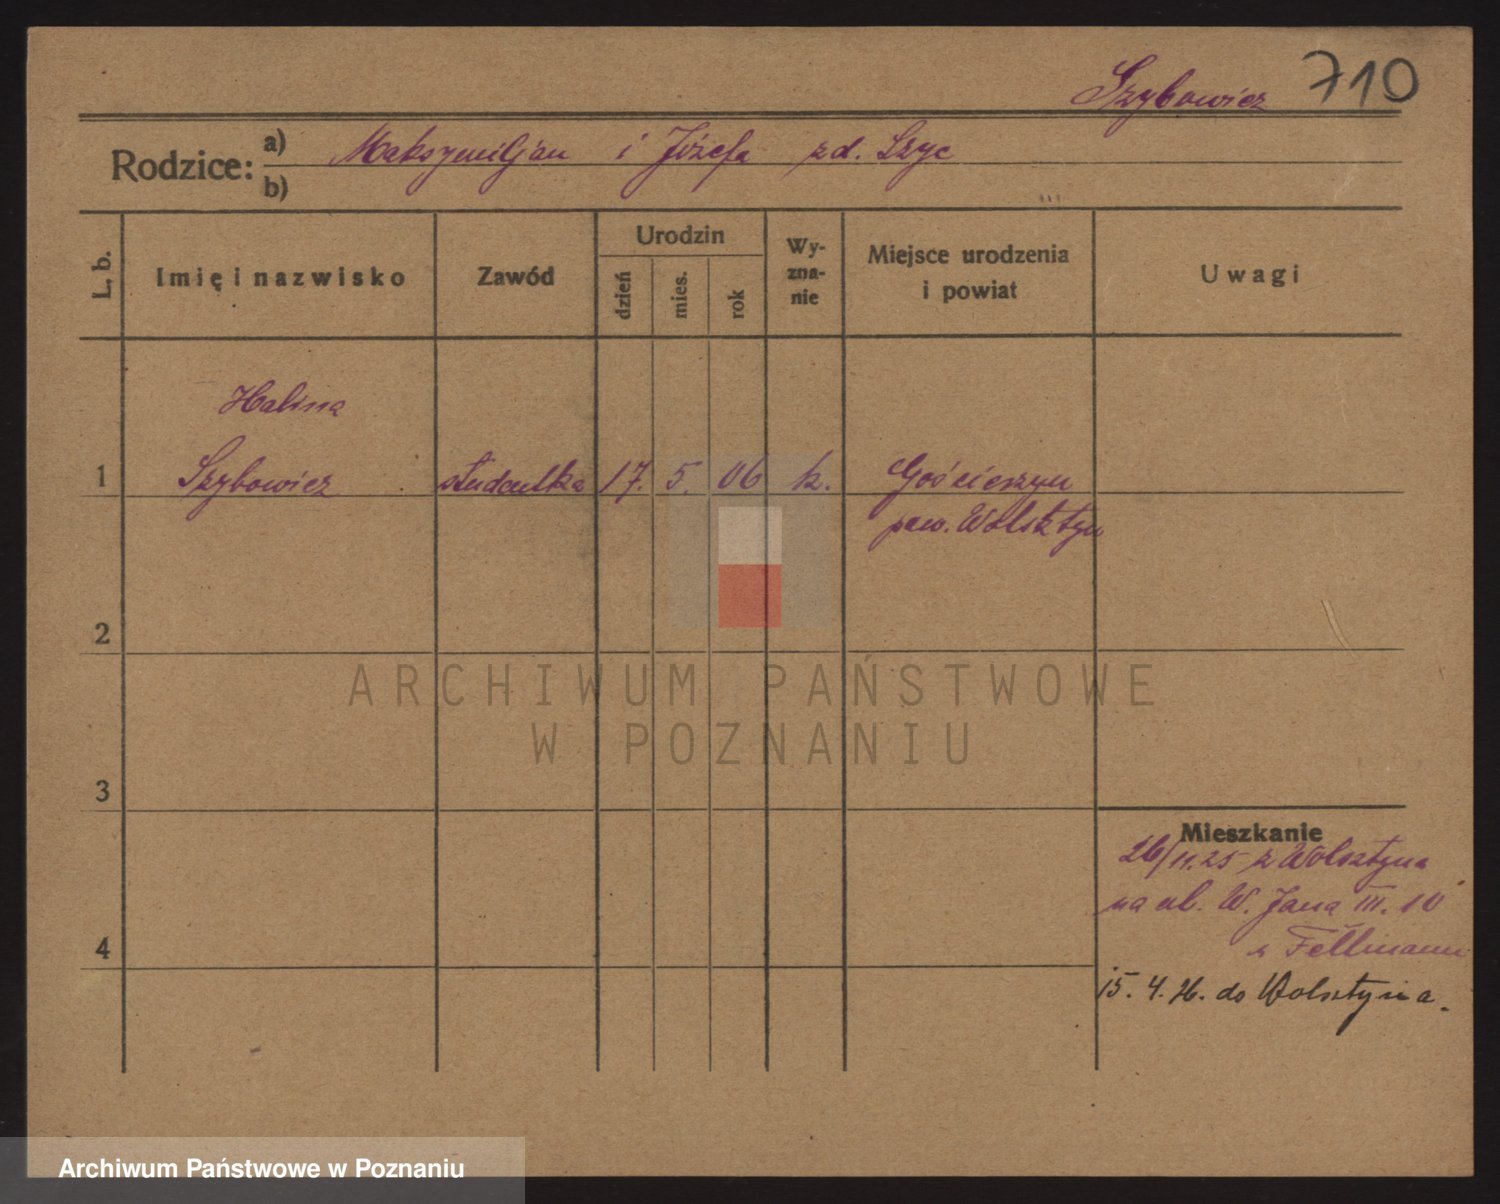 Szybowicz 710
Rodzice: a) Maksymiljan i Józefa zd. Szyc
b)
L. b.
Imię i nazwisko
Zawód
Urodzin
dzień
mies.
rok
Wy-
zna-
nie
Miejsce urodzenia
i powiat
Uwagi
Halina
1 Szybowicz studentka 17. 5. 06 k. Gościeszyn
pow. Wolsztyn
2
ARCHIWUM PAŃSTWOWE
W POZNANIU
3
Mieszkanie
26/11.25 z Wolsztyna
na ul. W. Jana III. 10
u Fellmann
4
15. 4. 26. do Wolsztyna.
Archiwum Państwowe w Poznaniu